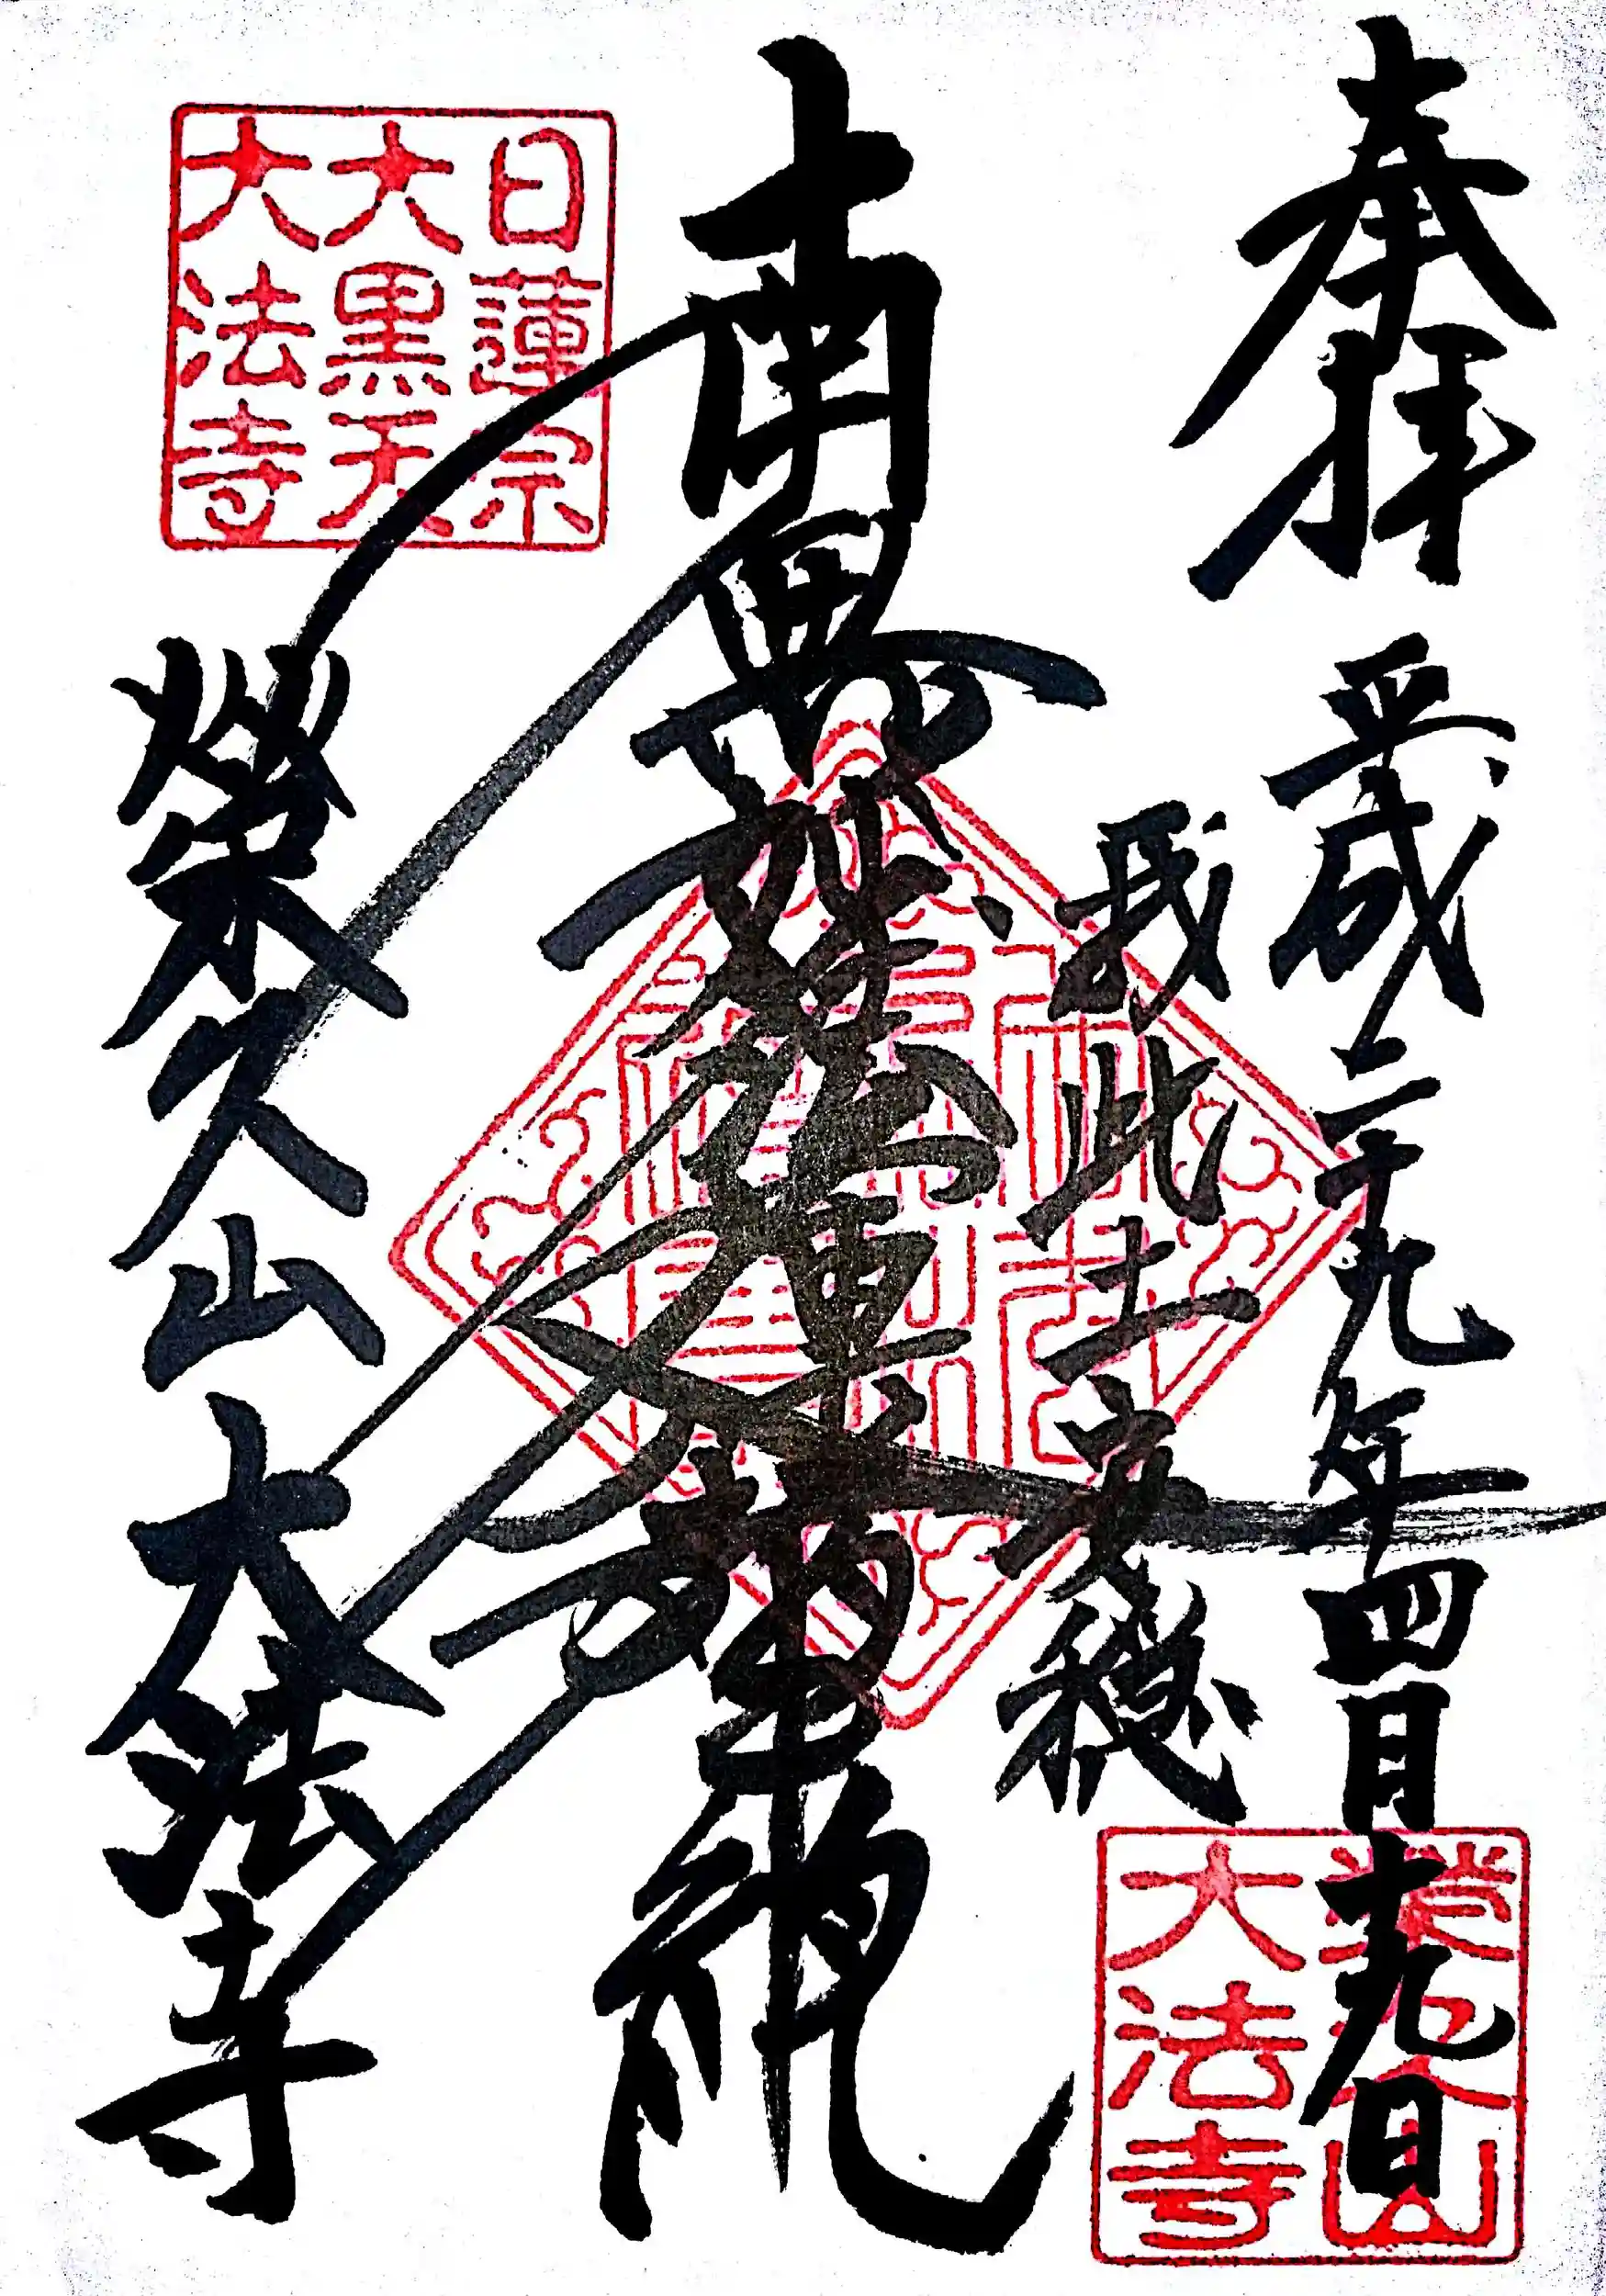 奉拝 平成二十九年四月十九日
我此土安穏
南無妙法蓮華経
榮久山大法寺
日蓮宗
大黒天
大法寺
榮久山
大法寺